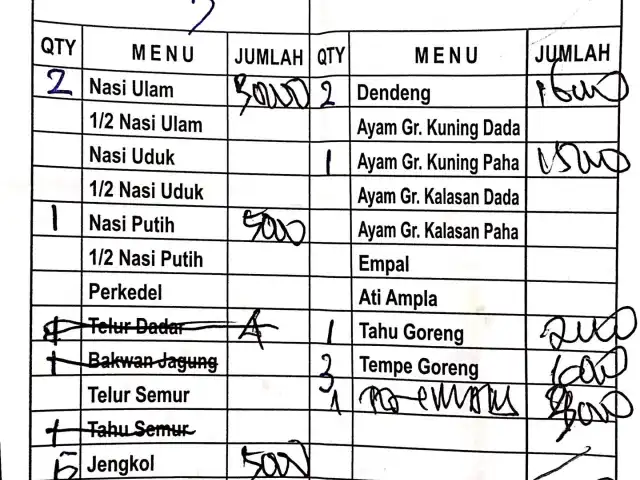 QTY MENU JUMLAH QTY MENU JUMLAH
2 Nasi Ulam 2 Dendeng 16000
1/2 Nasi Ulam Ayam Gr. Kuning Dada
Nasi Uduk 1 Ayam Gr. Kuning Paha 15000
1/2 Nasi Uduk Ayam Gr. Kalasan Dada
1 Nasi Putih 5000 Ayam Gr. Kalasan Paha
1/2 Nasi Putih Empal
Perkedel Ati Ampla
Telur Dadar 1 Tahu Goreng 2000
1 Bakwan Jagung 3 Tempe Goreng
Telur Semur 1
1 Tahu Semur
5 Jengkol 5000